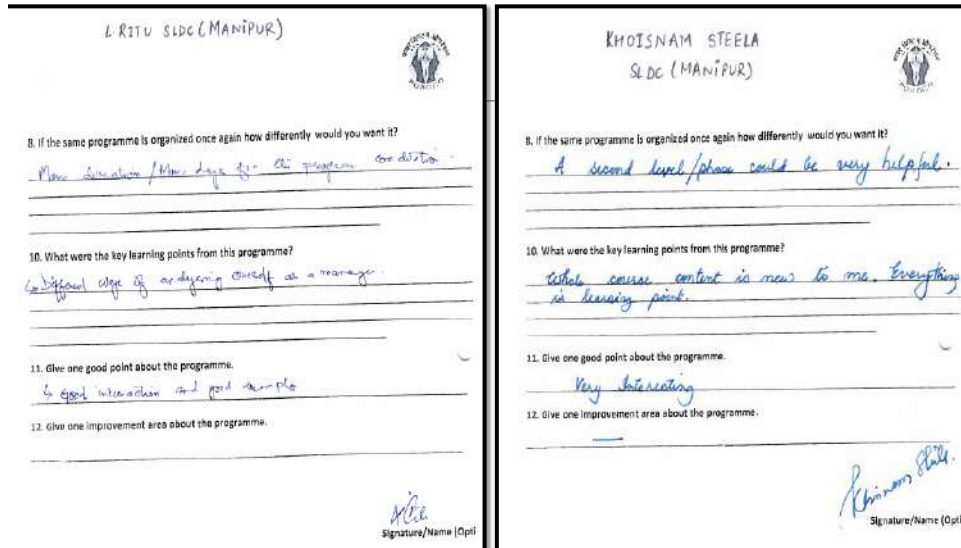 L. RITU SLDC (MANIPUR)
8. If the same programme is organized once again how differently would you want it?
More duration / More days for the program
10. What were the key learning points from this programme?
Different ways of ourself as a manager.
11. Give one good point about the programme.
Good interaction and good example
12. Give one improvement area about the programme.
Signature/Name (Opti
KHOISNAM STEELA
SLDC (MANIPUR)
8. If the same programme is organized once again how differently would you want it?
A second level/phase could be very helpful.
10. What were the key learning points from this programme?
Whole course content is new to me. Everything
is learning point.
11. Give one good point about the programme.
Very Interesting
12. Give one improvement area about the programme.
Signature/Name (Opti